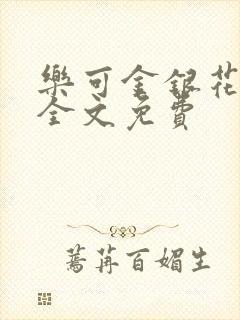 樂可金銀花
全文免費
蔫苒百媚生